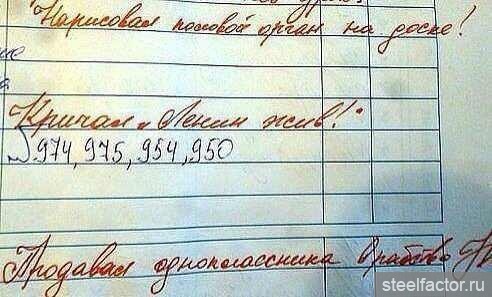 Нарисовал половой орган на доске!
Кричал „Ленин жив!"
974, 975, 954, 950
Продавал одноклассника в рабство
steelfactor.ru